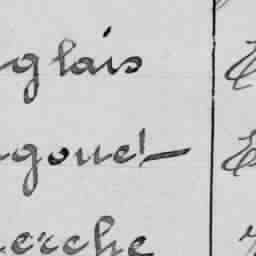 glais
gouet
erche